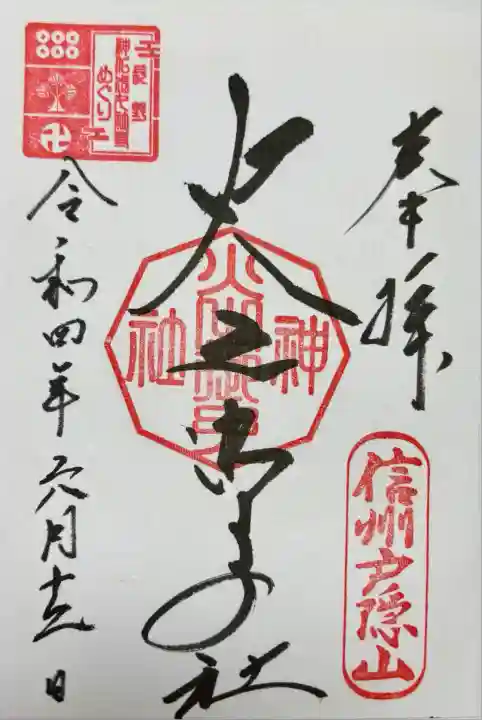 奉拝
信州戸隠山
火之御子社
神
社
令和四年六月十五日
長野
めぐり
卍